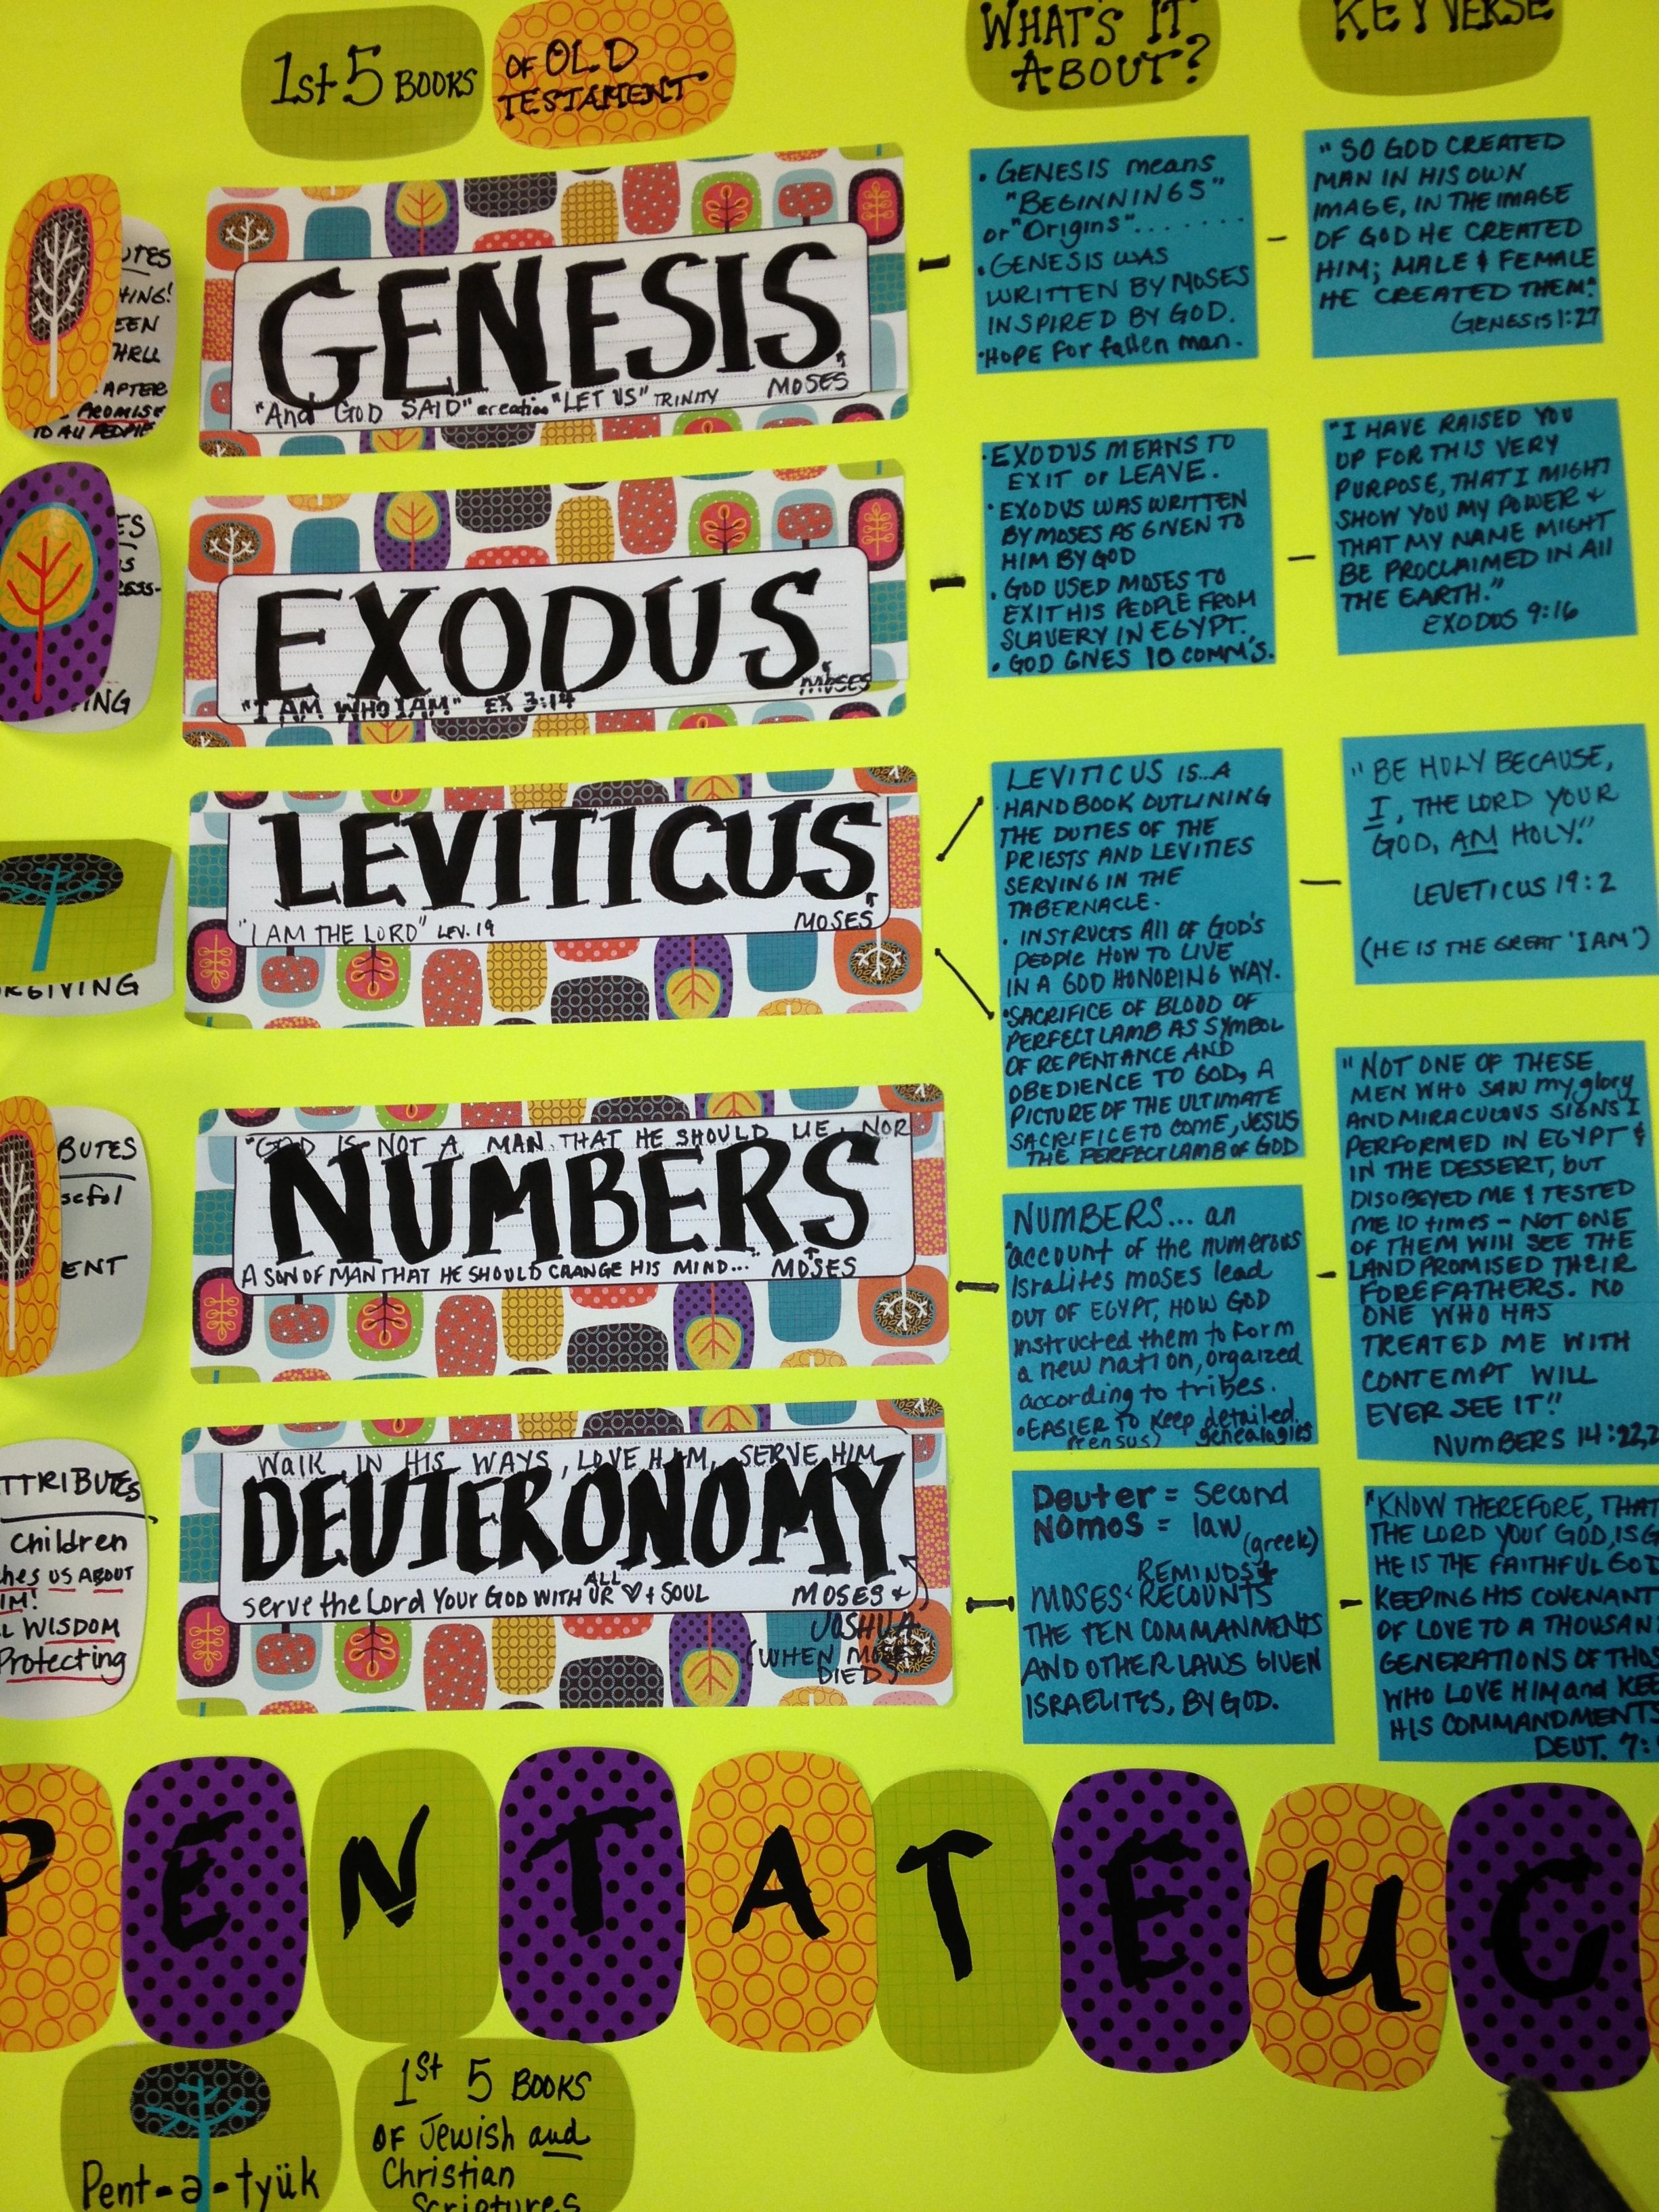 1st 5 BOOKS
OF OLD
TESTAMENT
WHAT'S IT
ABOUT?
KEY VERSE
UTES
HING!
EEN
HRU
AFTER
PROMISE
TO All PEOPLE
GENESIS
"And GOD SAID" creation "LET US" TRINITY
MOSES
• GENESIS means
"BEGINNINGS"
or "Origins".......
• GENESIS WAS
WRITTEN BY MOSES
INSPIRED BY GOD.
• HOPE For fallen man.
"SO GOD CREATED
MAN IN HIS OWN
IMAGE, IN THE IMAGE
OF GOD HE CREATED
HIM; MALE & FEMALE
HE CREATED THEM."
GENESIS 1:27
ES
IS
RESS-
ING
EXODUS
MOSES
"I AM WHO I AM" EX 3:14
• EXODUS MEANS TO
EXIT or LEAVE.
• EXODUS WAS WRITTEN
BY MOSES AS GIVEN TO
HIM BY GOD
• GOD USED MOSES TO
EXIT HIS PEOPLE FROM
SLAVERY IN EGYPT.
• GOD GIVES 10 COMM'S.
"I HAVE RAISED YOU
UP FOR THIS VERY
PURPOSE, THAT I MIGHT
SHOW YOU MY POWER &
THAT MY NAME MIGHT
BE PROCLAIMED IN All
THE EARTH."
EXODUS 9:16
RGIVING
LEVITICUS
"I AM THE LORD" LEV. 19
MOSES
LEVITICUS IS...A
HANDBOOK OUTLINING
THE DUTIES OF THE
PRIESTS AND LEVITIES
SERVING IN THE
TABERNACLE.
• INSTRUCTS All OF GOD'S
PEOPLE HOW TO LIVE
IN A GOD HONORING WAY.
• SACRIFICE OF BLOOD OF
PERFECT LAMB AS SYMBOL
OF REPENTANCE AND
OBEDIENCE TO GOD, A
PICTURE OF THE ULTIMATE
SACRIFICE TO COME, JESUS
THE PERFECT LAMB OF GOD
"BE HOLY BECAUSE,
I, THE LORD YOUR
GOD, AM HOLY."
LEVETICUS 19:2
(HE IS THE GREAT 'I AM')
BUTES
seful
ENT
"GOD IS NOT A MAN THAT HE SHOULD LIE, NOR
NUMBERS
A SON OF MAN THAT HE SHOULD CHANGE HIS MIND..." MOSES
NUMBERS... an
account of the numerous
Isralites moses lead
OUT OF EGYPT, HOW GOD
instructed them to form
a new nation, orgaized
according to tribes.
• EASIER TO Keep detailed
(census) genealogies
"NOT ONE OF THESE
MEN WHO SAW my glory
AND MIRACULOUS SIGNS I
PERFORMED IN EGYPT &
IN THE DESSERT, but
DISOBEYED ME & TESTED
ME 10 times - NOT ONE
OF THEM Will SEE THE
LAND PROMISED THEIR
FOREFATHERS. NO
ONE WHO HAS
TREATED ME WITH
CONTEMPT WILL
EVER SEE IT!"
NUMBERS 14:22,2
TTRIBUTES
Children
hes US ABOUT
IM!
L WISDOM
Protecting
Walk IN HIS WAYS, LOVE HIM, SERVE HIM
DEUTERONOMY
serve the Lord Your GOD WITH ALL UR ♡ + SOUL
MOSES &
JOSHUA
(WHEN MOSES
DIED)
Deuter = Second
Nomos = law
(greek)
REMINDS &
MOSES RECOUNTS
THE TEN COMMANMENTS
AND OTHER LAWS GIVEN
ISRAELITES, BY GOD.
"KNOW THEREFORE, THAT
THE LORD Your GOD, IS G
HE IS THE FAITHFUL GOD
KEEPING HIS COVENANT
OF LOVE TO A THOUSAN
GENERATIONS OF THOS
WHO LOVE HIM and KEE
HIS COMMANDMENTS
DEUT. 7:
PENTATEUC
Pent-a-tyük
1st 5 BOOKS
OF Jewish and
Christian
Scriptures